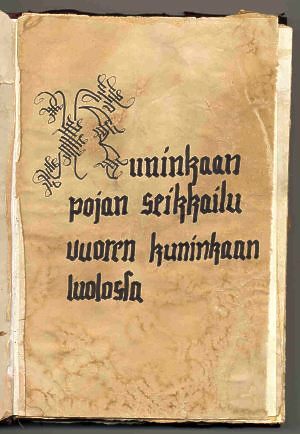 Kuninkaan
pojan seikkailu
vuoren kuninkaan
luolossa